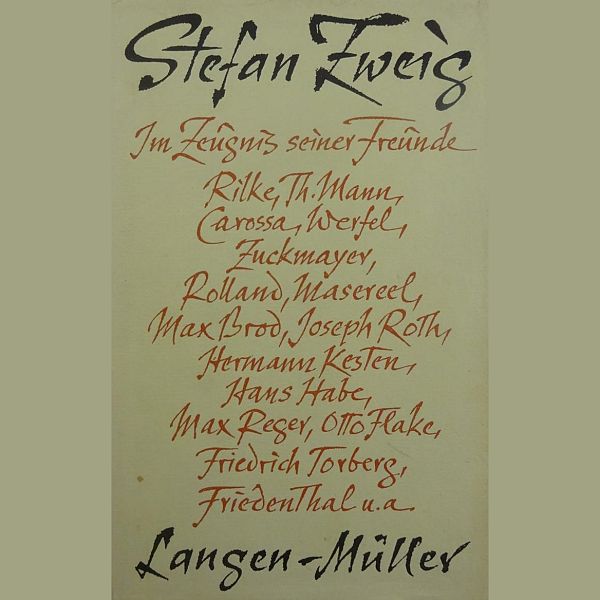 Stefan Zweig
Im Zeugnis seiner Freunde
Rilke, Th. Mann,
Carossa, Werfel,
Zuckmayer,
Rolland, Masereel,
Max Brod, Joseph Roth,
Hermann Kesten,
Hans Habe,
Max Reger, Otto Flake,
Friedrich Torberg,
Friedenthal u.a.
Langen-Müller